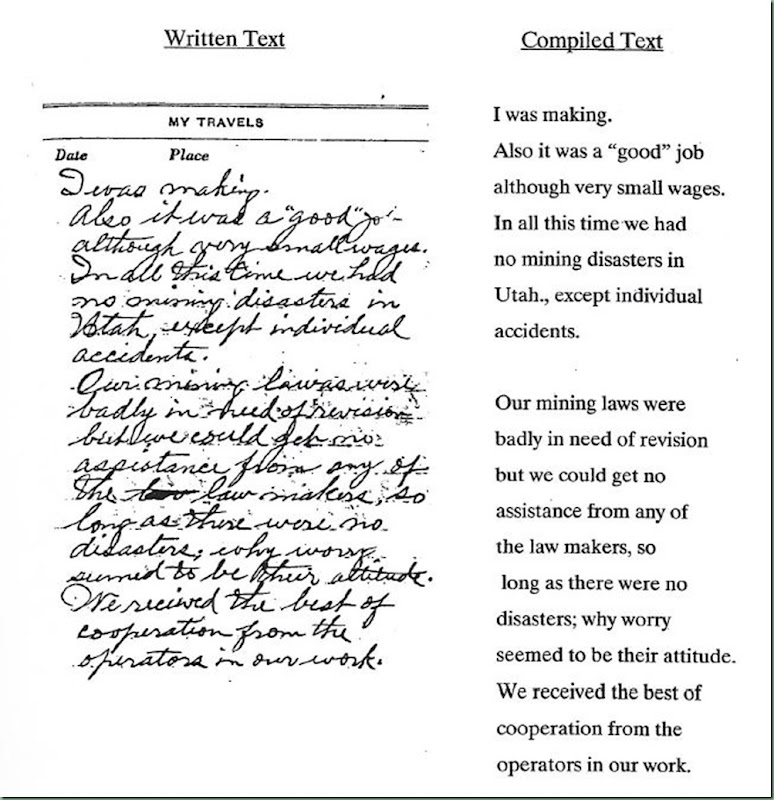 Written Text
MY TRAVELS
Date Place
I was making.
Also it was a "good" job
although very small wages.
In all this time we had
no mining disasters in
Utah, except individual
accidents.
Our mining laws were
badly in need of revision
but we could get no
assistance from any of
the law makers, so
long as there were no
disasters; why worry
seemed to be their attitude.
We recieved the best of
cooperation from the
operators in our work.
Compiled Text
I was making.
Also it was a “good” job
although very small wages.
In all this time we had
no mining disasters in
Utah., except individual
accidents.
Our mining laws were
badly in need of revision
but we could get no
assistance from any of
the law makers, so
long as there were no
disasters; why worry
seemed to be their attitude.
We received the best of
cooperation from the
operators in our work.